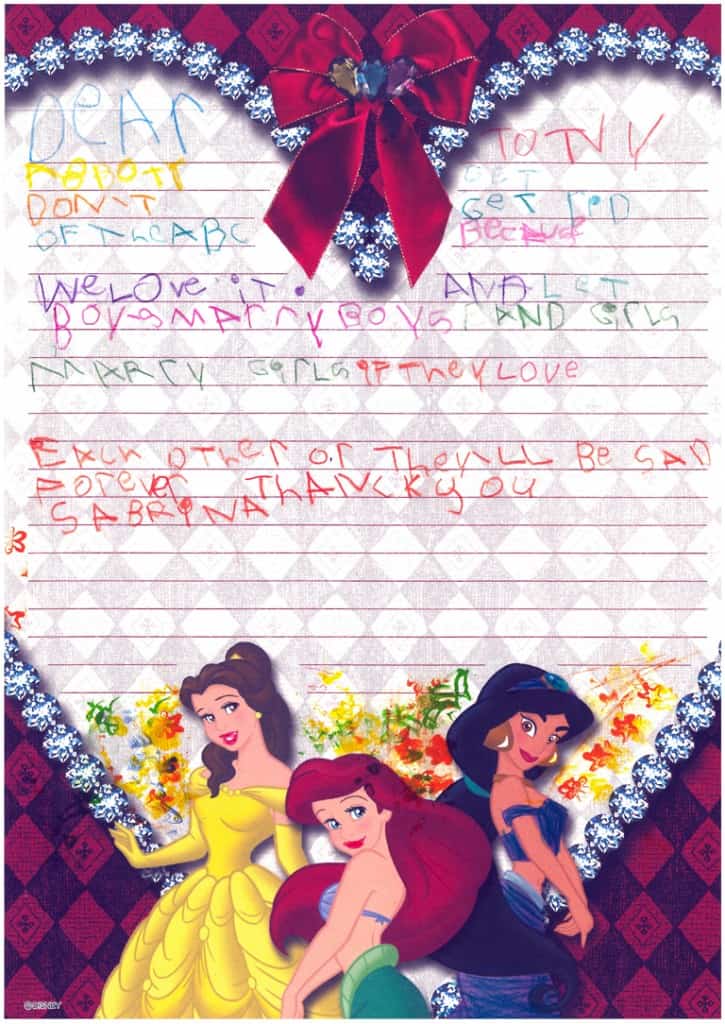 Dear TOTNY
ABBOTT
DON'T GET rID
OF TheABC Because
WeLOve iT. AND LeT
BoysMArryBOYS AND GirLs
MArry GirLS iF TheyLOVe
EAch OTher Or TheyLL Be SAD
Forever THANcKyOU
SABRINA
©DISNEY